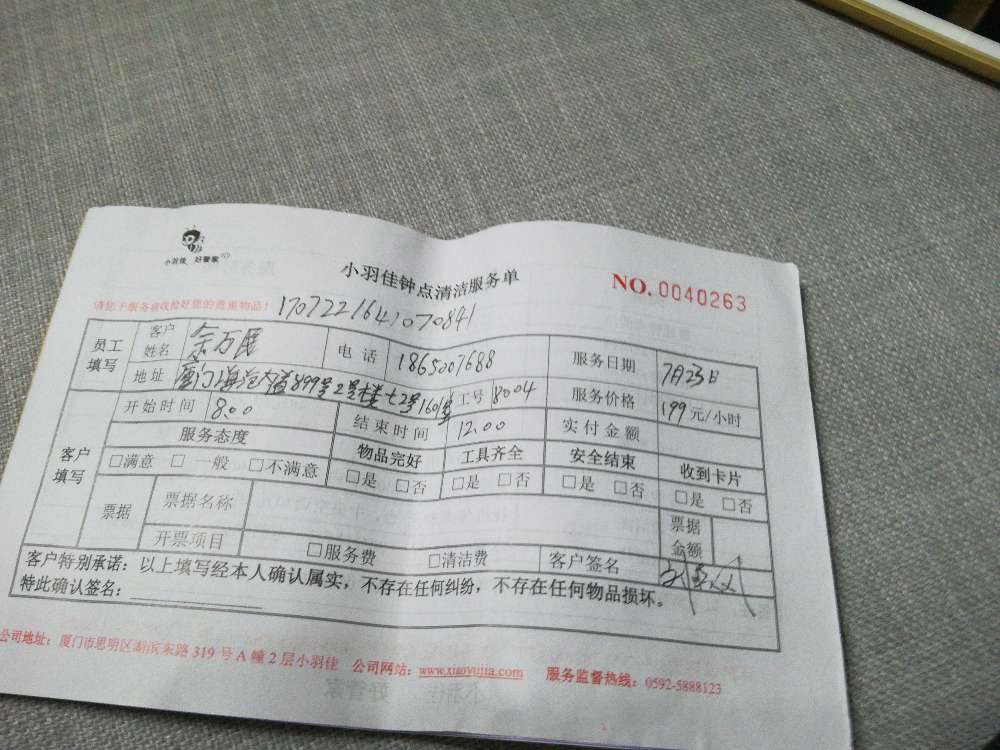 小羽佳 好管家
小羽佳钟点清洁服务单
NO. 0040263
请您于服务前收拾好您的贵重物品! 1707221641070841
员工填写 客户姓名 余万民 电话 1865007688 服务日期 7月23日
地址 厦门 899号2号楼 1601 工号 8004 服务价格 199 元/小时
客户填写 开始时间 8.00 结束时间 12.00 实付金额
服务态度 物品完好 工具齐全 安全结束 收到卡片
□满意 □一般 □不满意 □是 □否 □是 □否 □是 □否 □是 □否
票据 票据名称 票据金额
开票项目 □服务费 □清洁费 客户签名
客户特别承诺:以上填写经本人确认属实,不存在任何纠纷,不存在任何物品损坏。
特此确认签名:
公司地址:厦门市思明区湖滨东路 319 号 A 幢 2 层小羽佳 公司网站:www.xiaoyujia.com 服务监督热线:0592-5888123